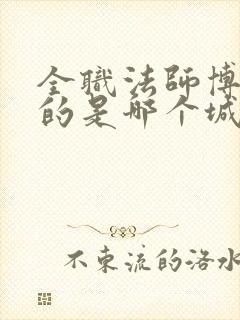 全職法師博
的是哪个城
不东流的洛水